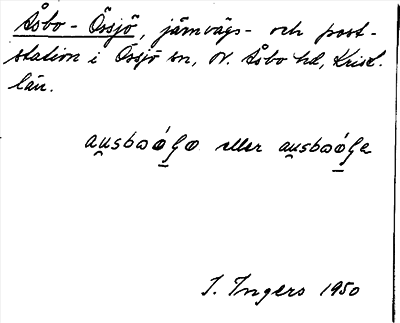 Åsbo-Össjö, järnvägs- och post-
station i Össjö sn, N. Åsbo hd, Krist.
län.
eller
I. Ingers 1950